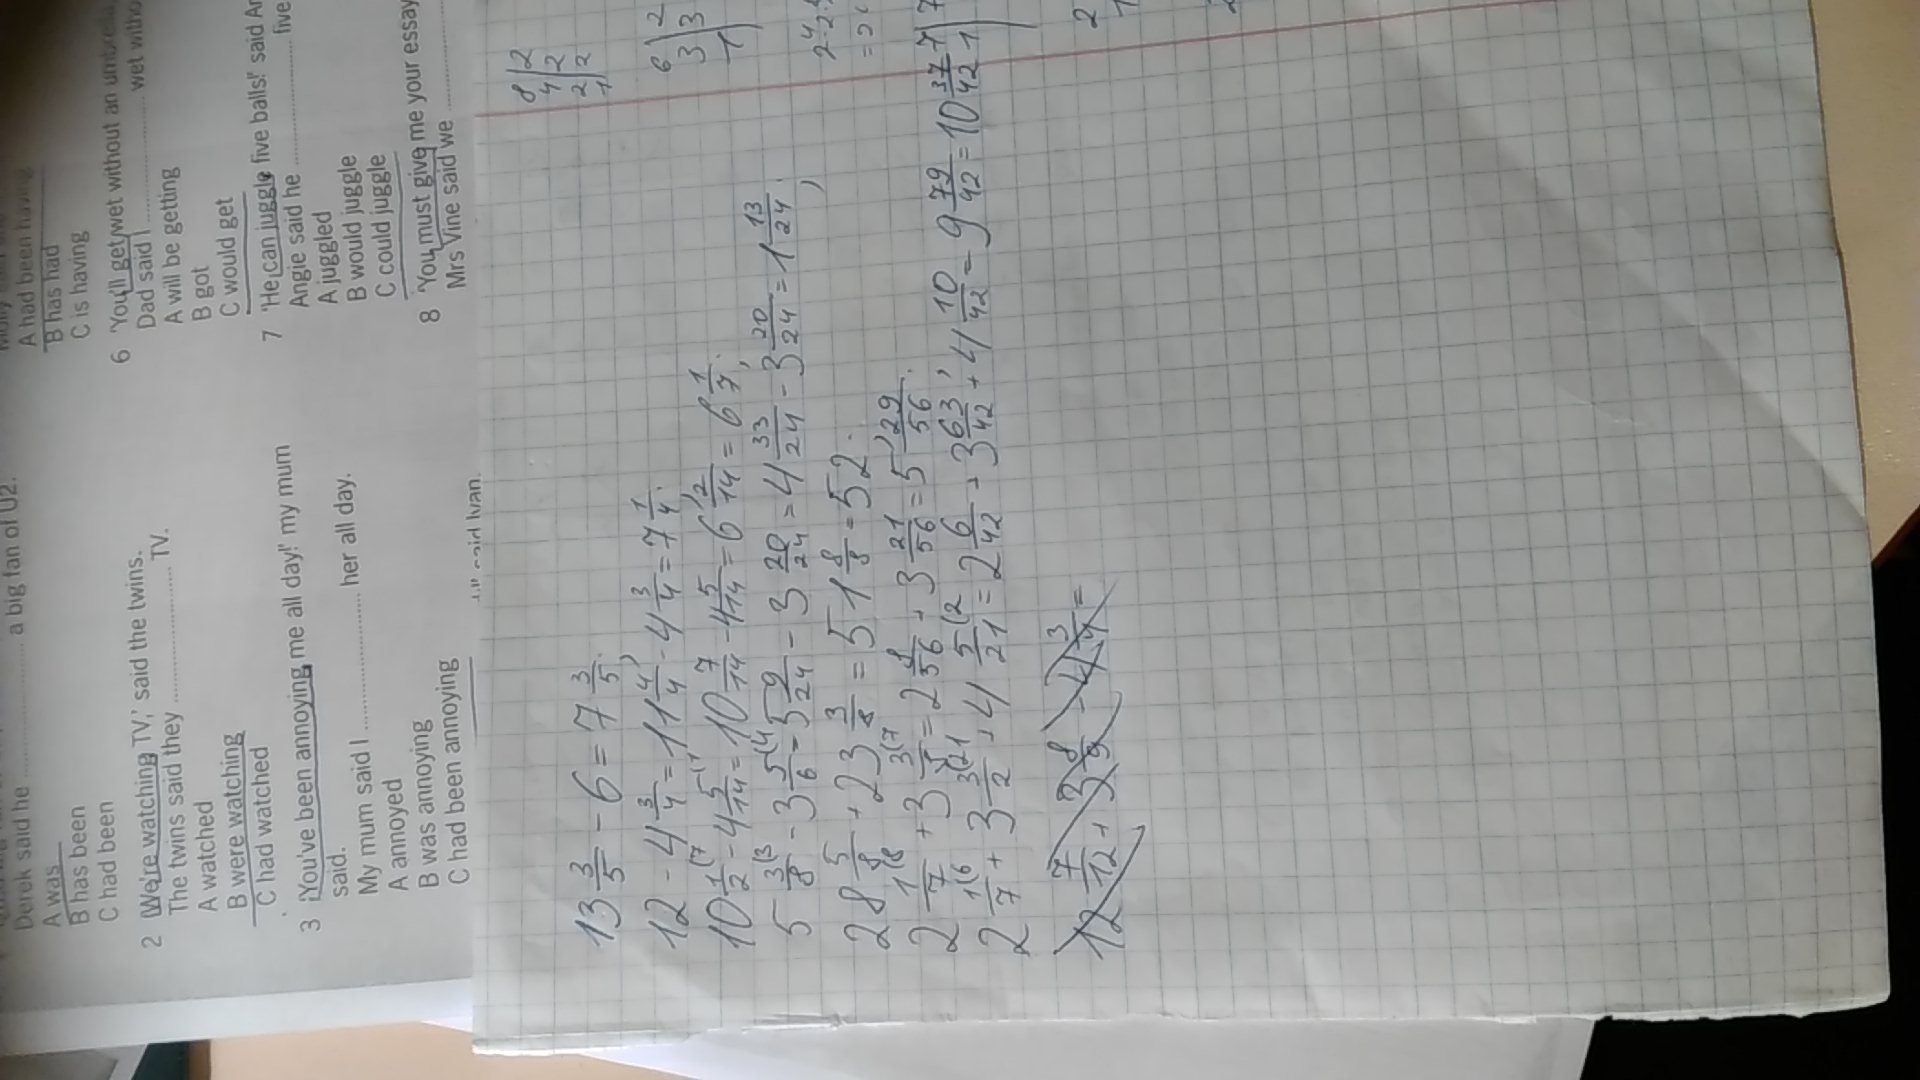 Derek said he ........ a big fan of U2.
A was
B has been
C had been
2 'We're watching TV,' said the twins.
The twins said they ........ TV.
A watched
B were watching
C had watched
3 'You've been annoying me all day!' my mum
said.
My mum said I ........ her all day.
A annoyed
B was annoying
C had been annoying
A had been having
B has had
C is having
6 'You'll get wet without an
Dad said I ........ wet
A will be getting
B got
C would get
7 'He can juggle five balls!' said
Angie said he ........ five
A juggled
B would juggle
C could juggle
8 'You must give me your essay
Mrs Vine said we ........
said Ivan.
13 3/5 - 6 = 7 3/5.
12 - 4 3/4 = 11 4/4 - 4 3/4 = 7 1/4.
10 1/2 - 4 5/14 = 10 7/14 - 4 5/14 = 6 2/14 = 6 1/7.
5 3/8 - 3 5/6 = 5 9/24 - 3 20/24 = 4 33/24 - 3 20/24 = 1 13/24.
28 5/8 + 23 3/8 = 51 8/8 = 52.
2 1/7 + 3 3/8 = 2 8/56 + 3 21/56 = 5 29/56.
2 1/7 + 3 3/2 + 4 5/21 = 2 6/42 + 3 63/42 + 4 10/42 = 9 79/42 = 10 37/42
8 | 2
4 | 2
2 | 2
1
6 | 2
3 | 3
1
7 | 7
1